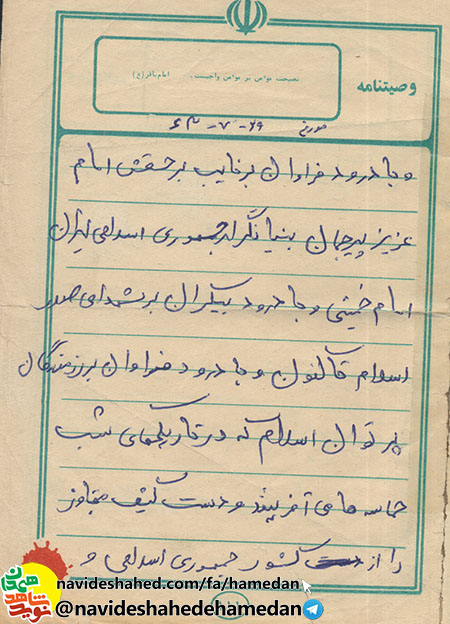 وصیتنامه
نصیحت مؤمن بر مؤمن واجبست. امام باقر (ع)
مورخ ۶۹-۷-۶۳
و با درود فراوان بر نایب برحقش امام
عزیز پیر جمان بنیانگزار جمهوری اسلامی ایران
امام خمینی و با درود بیکران بر شهدای صدر
اسلام تا کنون و با درود فراوان بر رزمندگان
پر توان اسلام که در تاریکیهای شب
حماسه ها می آفرینند و دست کثیف متجاوز
را از کشور جمهوری اسلامی و
navideshahed.com/fa/hamedan
@navideshahedehamedan
نوید شاهد همدان